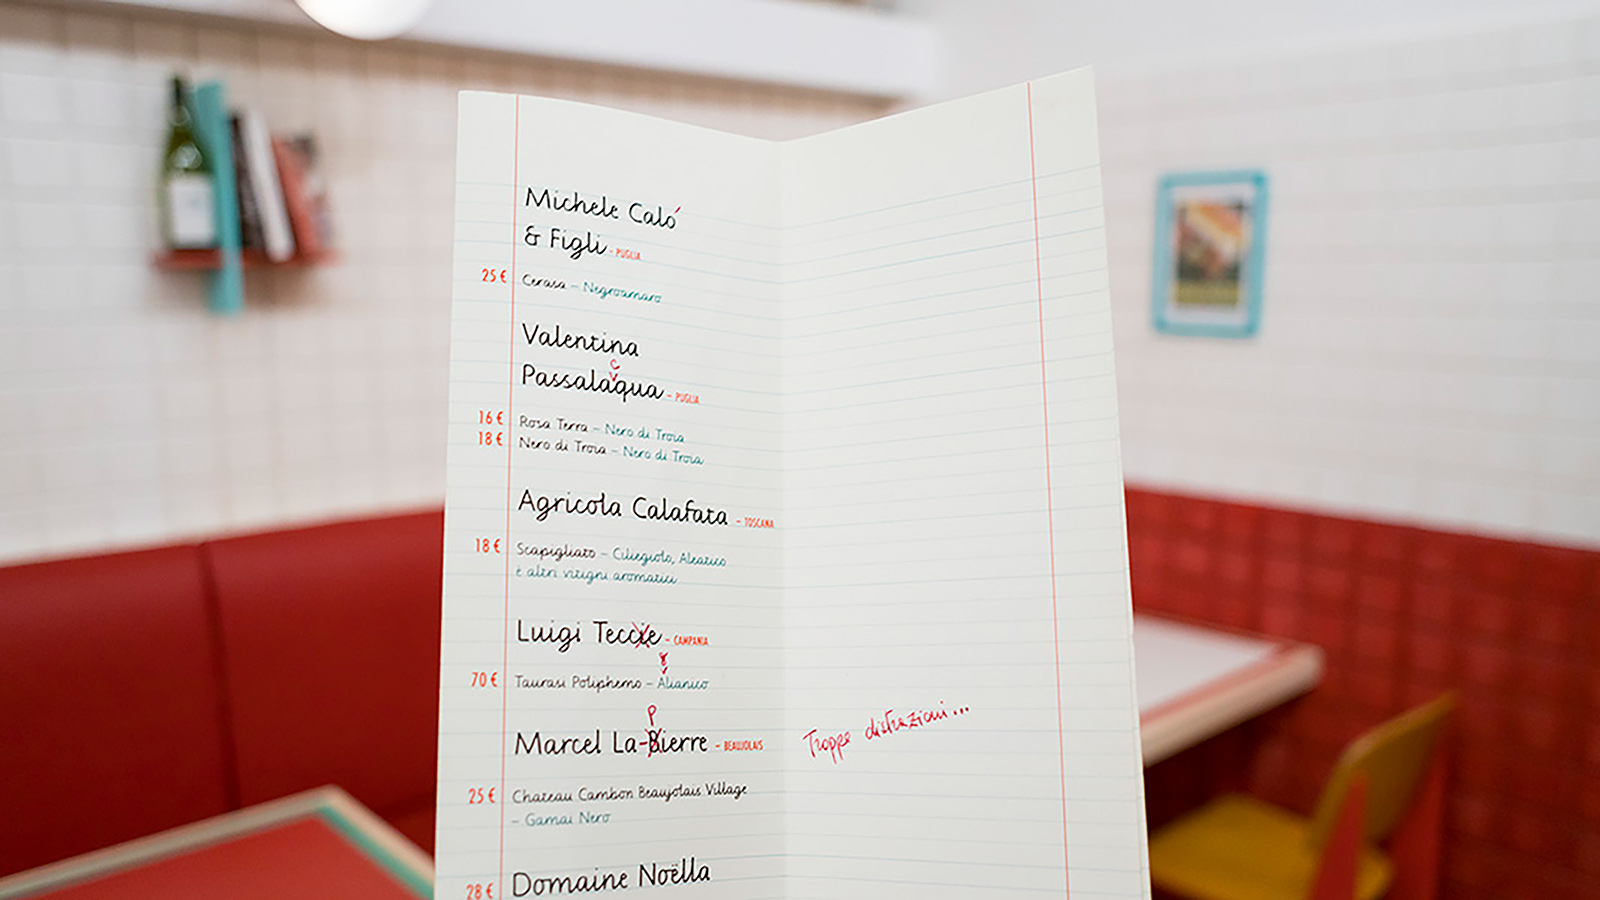 Michele Caló
& Figli - PUGLIA
25 € Cerasa - Negroamaro
Valentina
c
Passalaqua - PUGLIA
16 € Rosa Terra - Nero di Troia
18 € Nero di Troia - Nero di Troia
Agricola Calafata - TOSCANA
18 € Scapigliato - Ciliegiolo, Aleatico
e altri vitigni aromatici
Luigi Teccie - CAMPANIA
g
70 € Taurasi Poliphemo - Alianico
P
Marcel La-Bierre - BEAUJOLAIS
Troppe distrazioni...
25 € Chateau Cambon Beaujolais Village
- Gamai Nero
28 € Domaine Noëlla